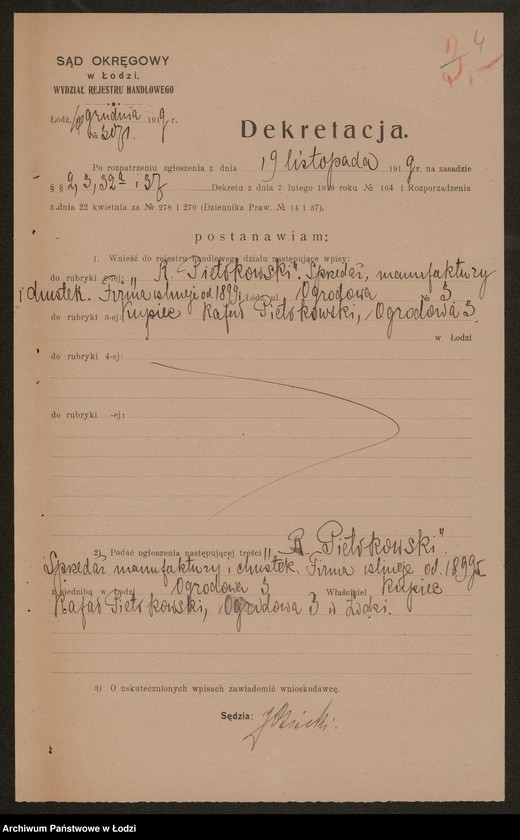 4
SĄD OKRĘGOWY
w Łodzi.
WYDZIAŁ REJESTRU HANDLOWEGO
Łódź, grudnia 1919 r.
№ 3071.
Dekretacja.
Po rozpatrzeniu zgłoszenia z dnia 19 listopada 1919 r. na zasadzie
§ § 2, 3, 32a i 37 Dekretu z dnia 7 lutego 1919 roku № 164 i Rozporządzenia
z dnia 22 kwietnia za № 278 i 279 (Dziennika Praw. № 14 i 37),
postanawiam:
1. Wnieść do rejestru handlowego działu następujące wpisy:
do rubryki 2-ej: "R. Pietrkowski". Sprzedaż manufaktury
i chustek. Firma istnieje od 1899 r. Łódź, ul. Ogrodowa № 3
do rubryki 3-ej: Kupiec Rafał Pietrkowski, Ogrodowa 3.
w Łodzi
do rubryki 4-ej:
do rubryki -ej:
2) Podać ogłoszenia następującej treści: "R. Pietrkowski".
Sprzedaż manufaktury i chustek. Firma istnieje od 1899 r.
z siedzibą w Łodzi Ogrodowa 3 Właściciel kupiec
Rafał Pietrkowski, Ogrodowa 3 w Łodzi.
3) O uskutecznionych wpisach zawiadomić wnioskodawcę.
Sędzia:
Archiwum Państwowe w Łodzi